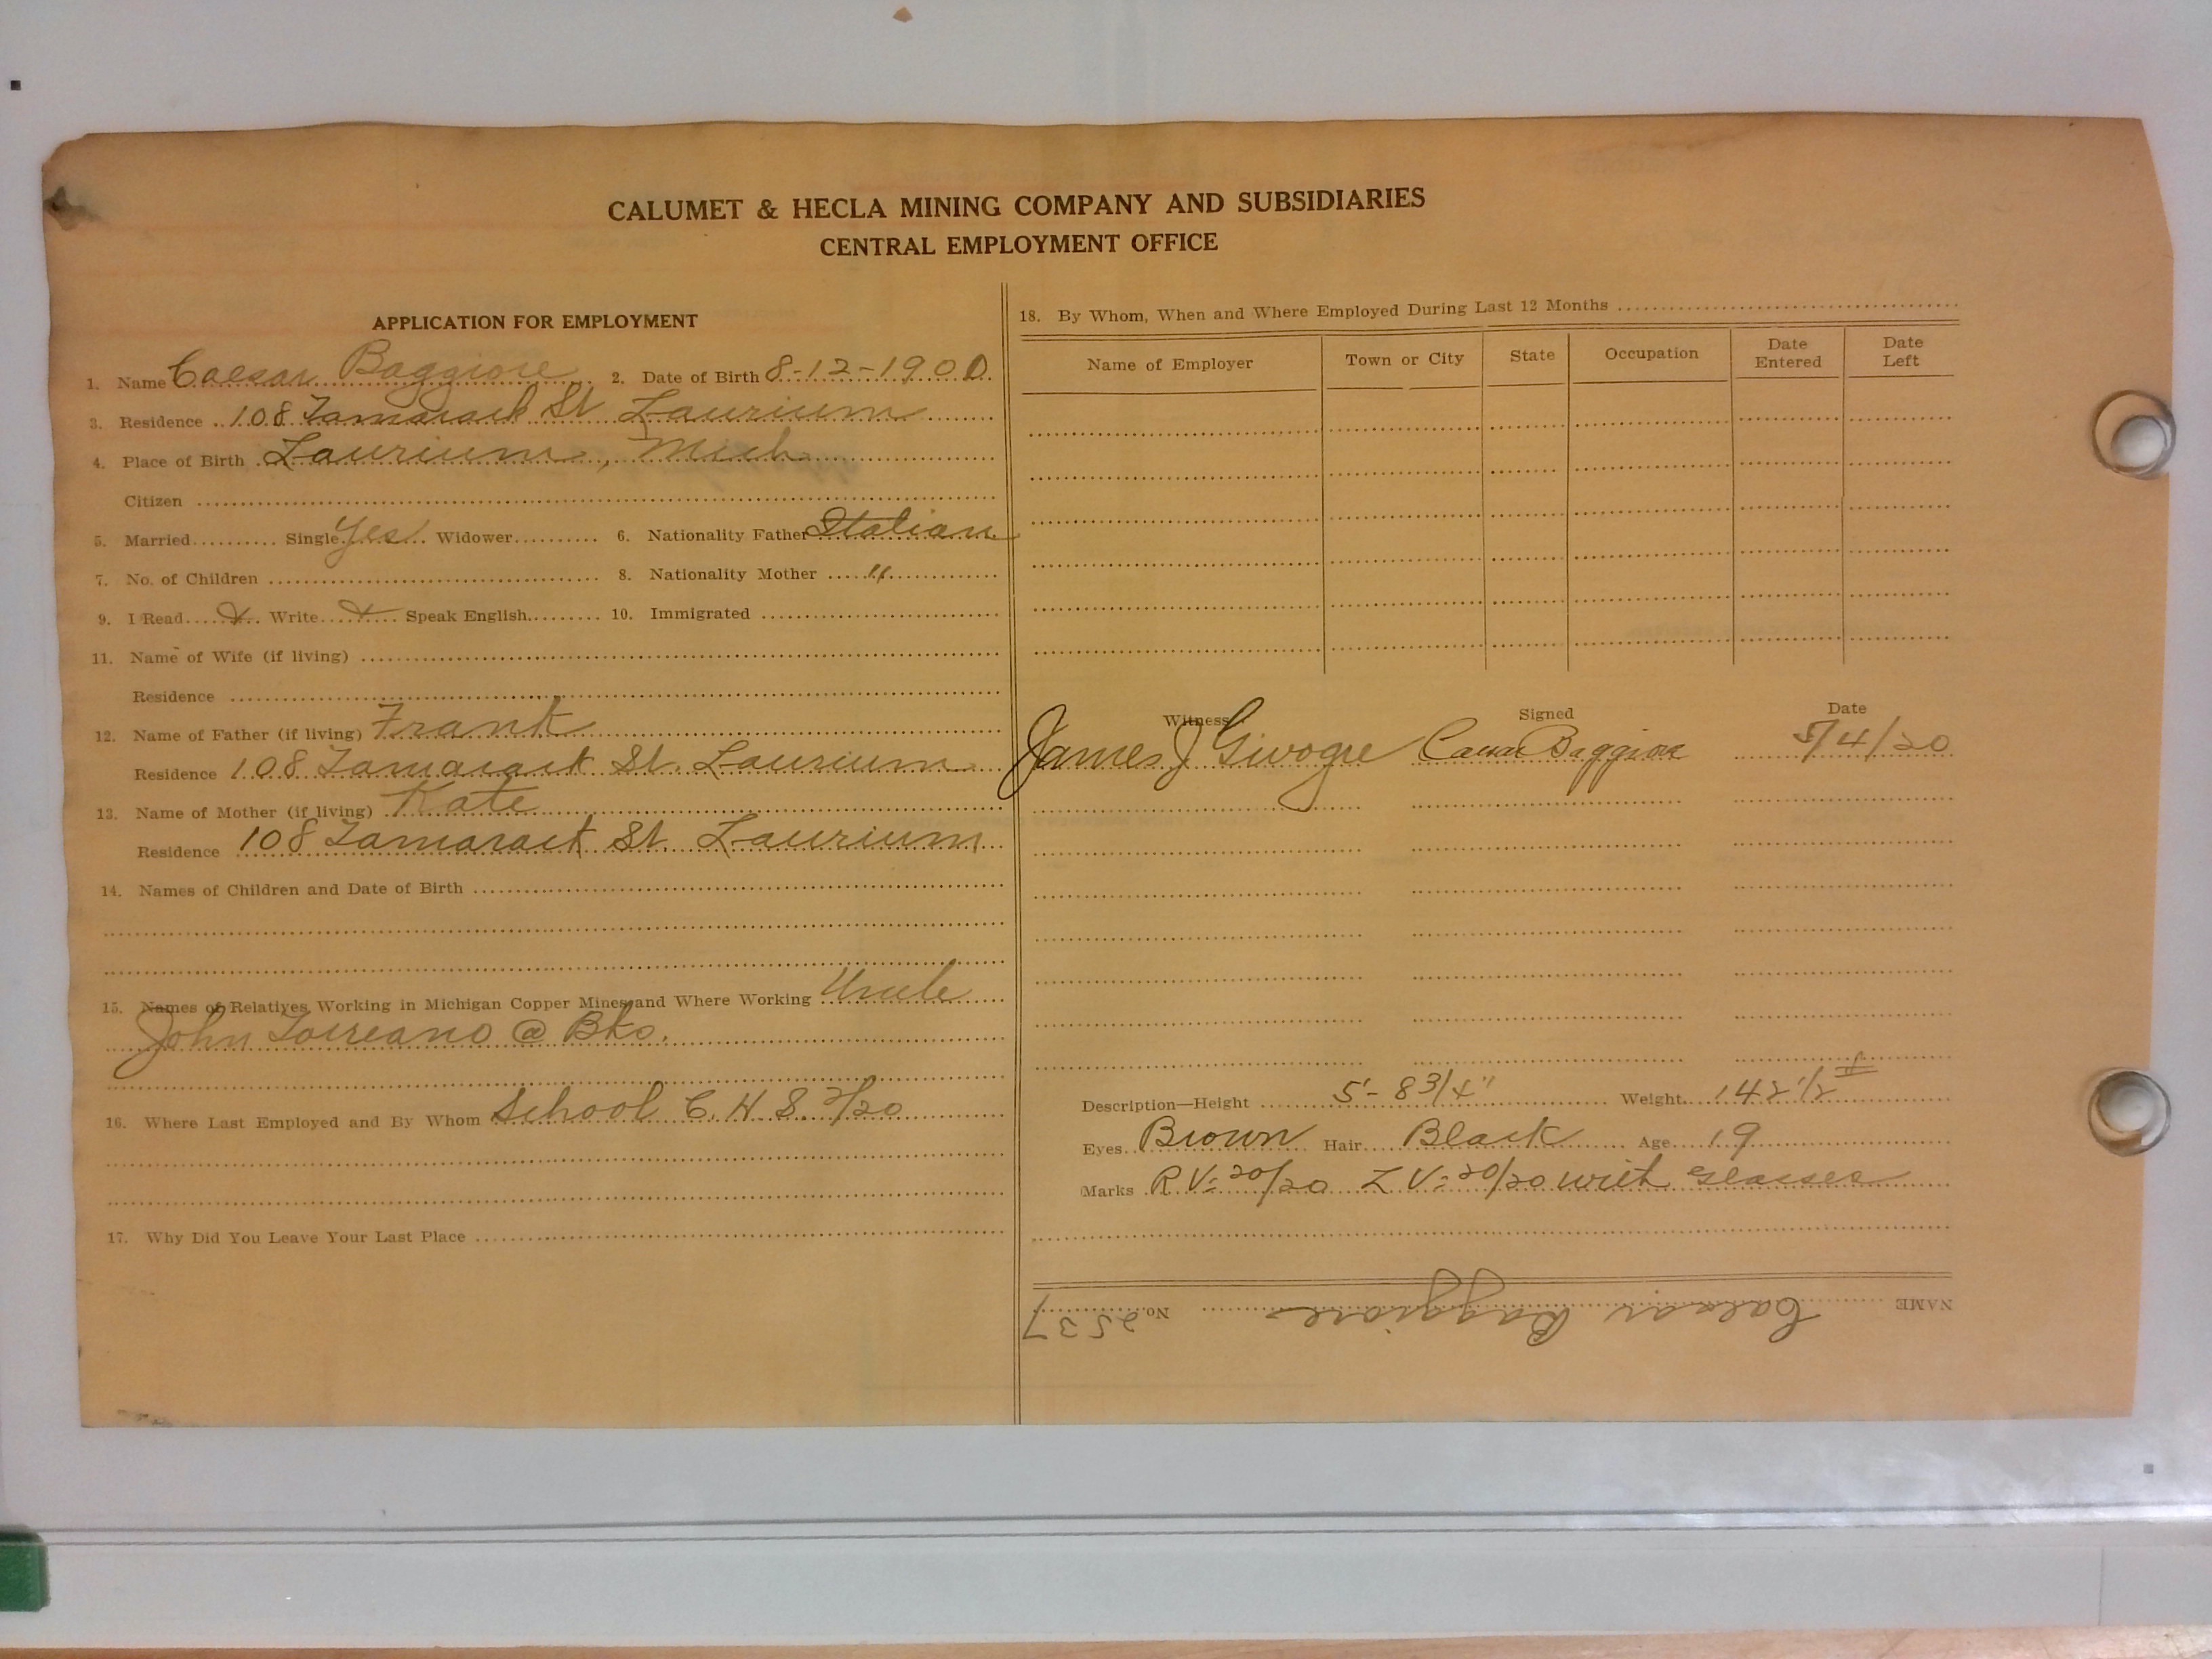 CALUMET & HECLA MINING COMPANY AND SUBSIDIARIES
CENTRAL EMPLOYMENT OFFICE
APPLICATION FOR EMPLOYMENT
1. Name Caesar Baggiore 2. Date of Birth 8-12-1900
3. Residence 108 Tamarack St Laurium
4. Place of Birth Laurium, Mich
Citizen
5. Married Single Yes Widower 6. Nationality Father Italian
7. No. of Children 8. Nationality Mother "
9. I Read X Write X Speak English 10. Immigrated
11. Name of Wife (if living)
Residence
12. Name of Father (if living) Frank
Residence 108 Tamarack St. Laurium
13. Name of Mother (if living) Kate
Residence 108 Tamarack St. Laurium
14. Names of Children and Date of Birth
15. Names of Relatives Working in Michigan Copper Mines and Where Working Uncle
John Torreano @ Bks.
16. Where Last Employed and By Whom School C. H. S. 2/20
17. Why Did You Leave Your Last Place
18. By Whom, When and Where Employed During Last 12 Months
Name of Employer Town or City State Occupation Date Entered Date Left
Witness Signed Date
James J Givogre Caesar Baggiore 5/4/20
Description—Height 5'-8 3/4" Weight 142 1/2 #
Eyes Brown Hair Black Age 19
Marks R.V= 20/20 L V= 20/20 with glasses
NAME Caesar Baggiore No. 2537